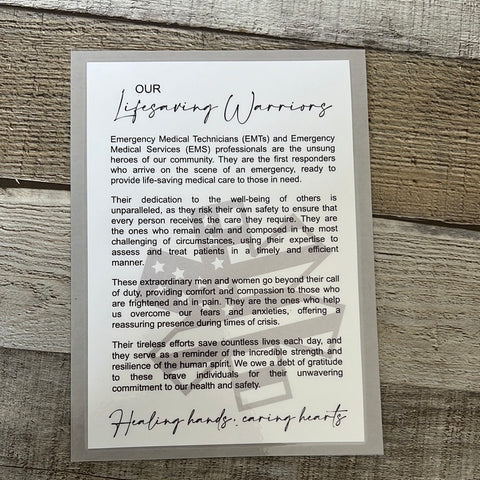 OUR
Lifesaving Warriors
Emergency Medical Technicians (EMTs) and Emergency
Medical Services (EMS) professionals are the unsung
heroes of our community. They are the first responders
who arrive on the scene of an emergency, ready to
provide life-saving medical care to those in need.
Their dedication to the well-being of others is
unparalleled, as they risk their own safety to ensure that
every person receives the care they require. They are
the ones who remain calm and composed in the most
challenging of circumstances, using their expertise to
assess and treat patients in a timely and efficient
manner.
These extraordinary men and women go beyond their call
of duty, providing comfort and compassion to those who
are frightened and in pain. They are the ones who help
us overcome our fears and anxieties, offering a
reassuring presence during times of crisis.
Their tireless efforts save countless lives each day, and
they serve as a reminder of the incredible strength and
resilience of the human spirit. We owe a debt of gratitude
to these brave individuals for their unwavering
commitment to our health and safety.
Healing hands, caring hearts